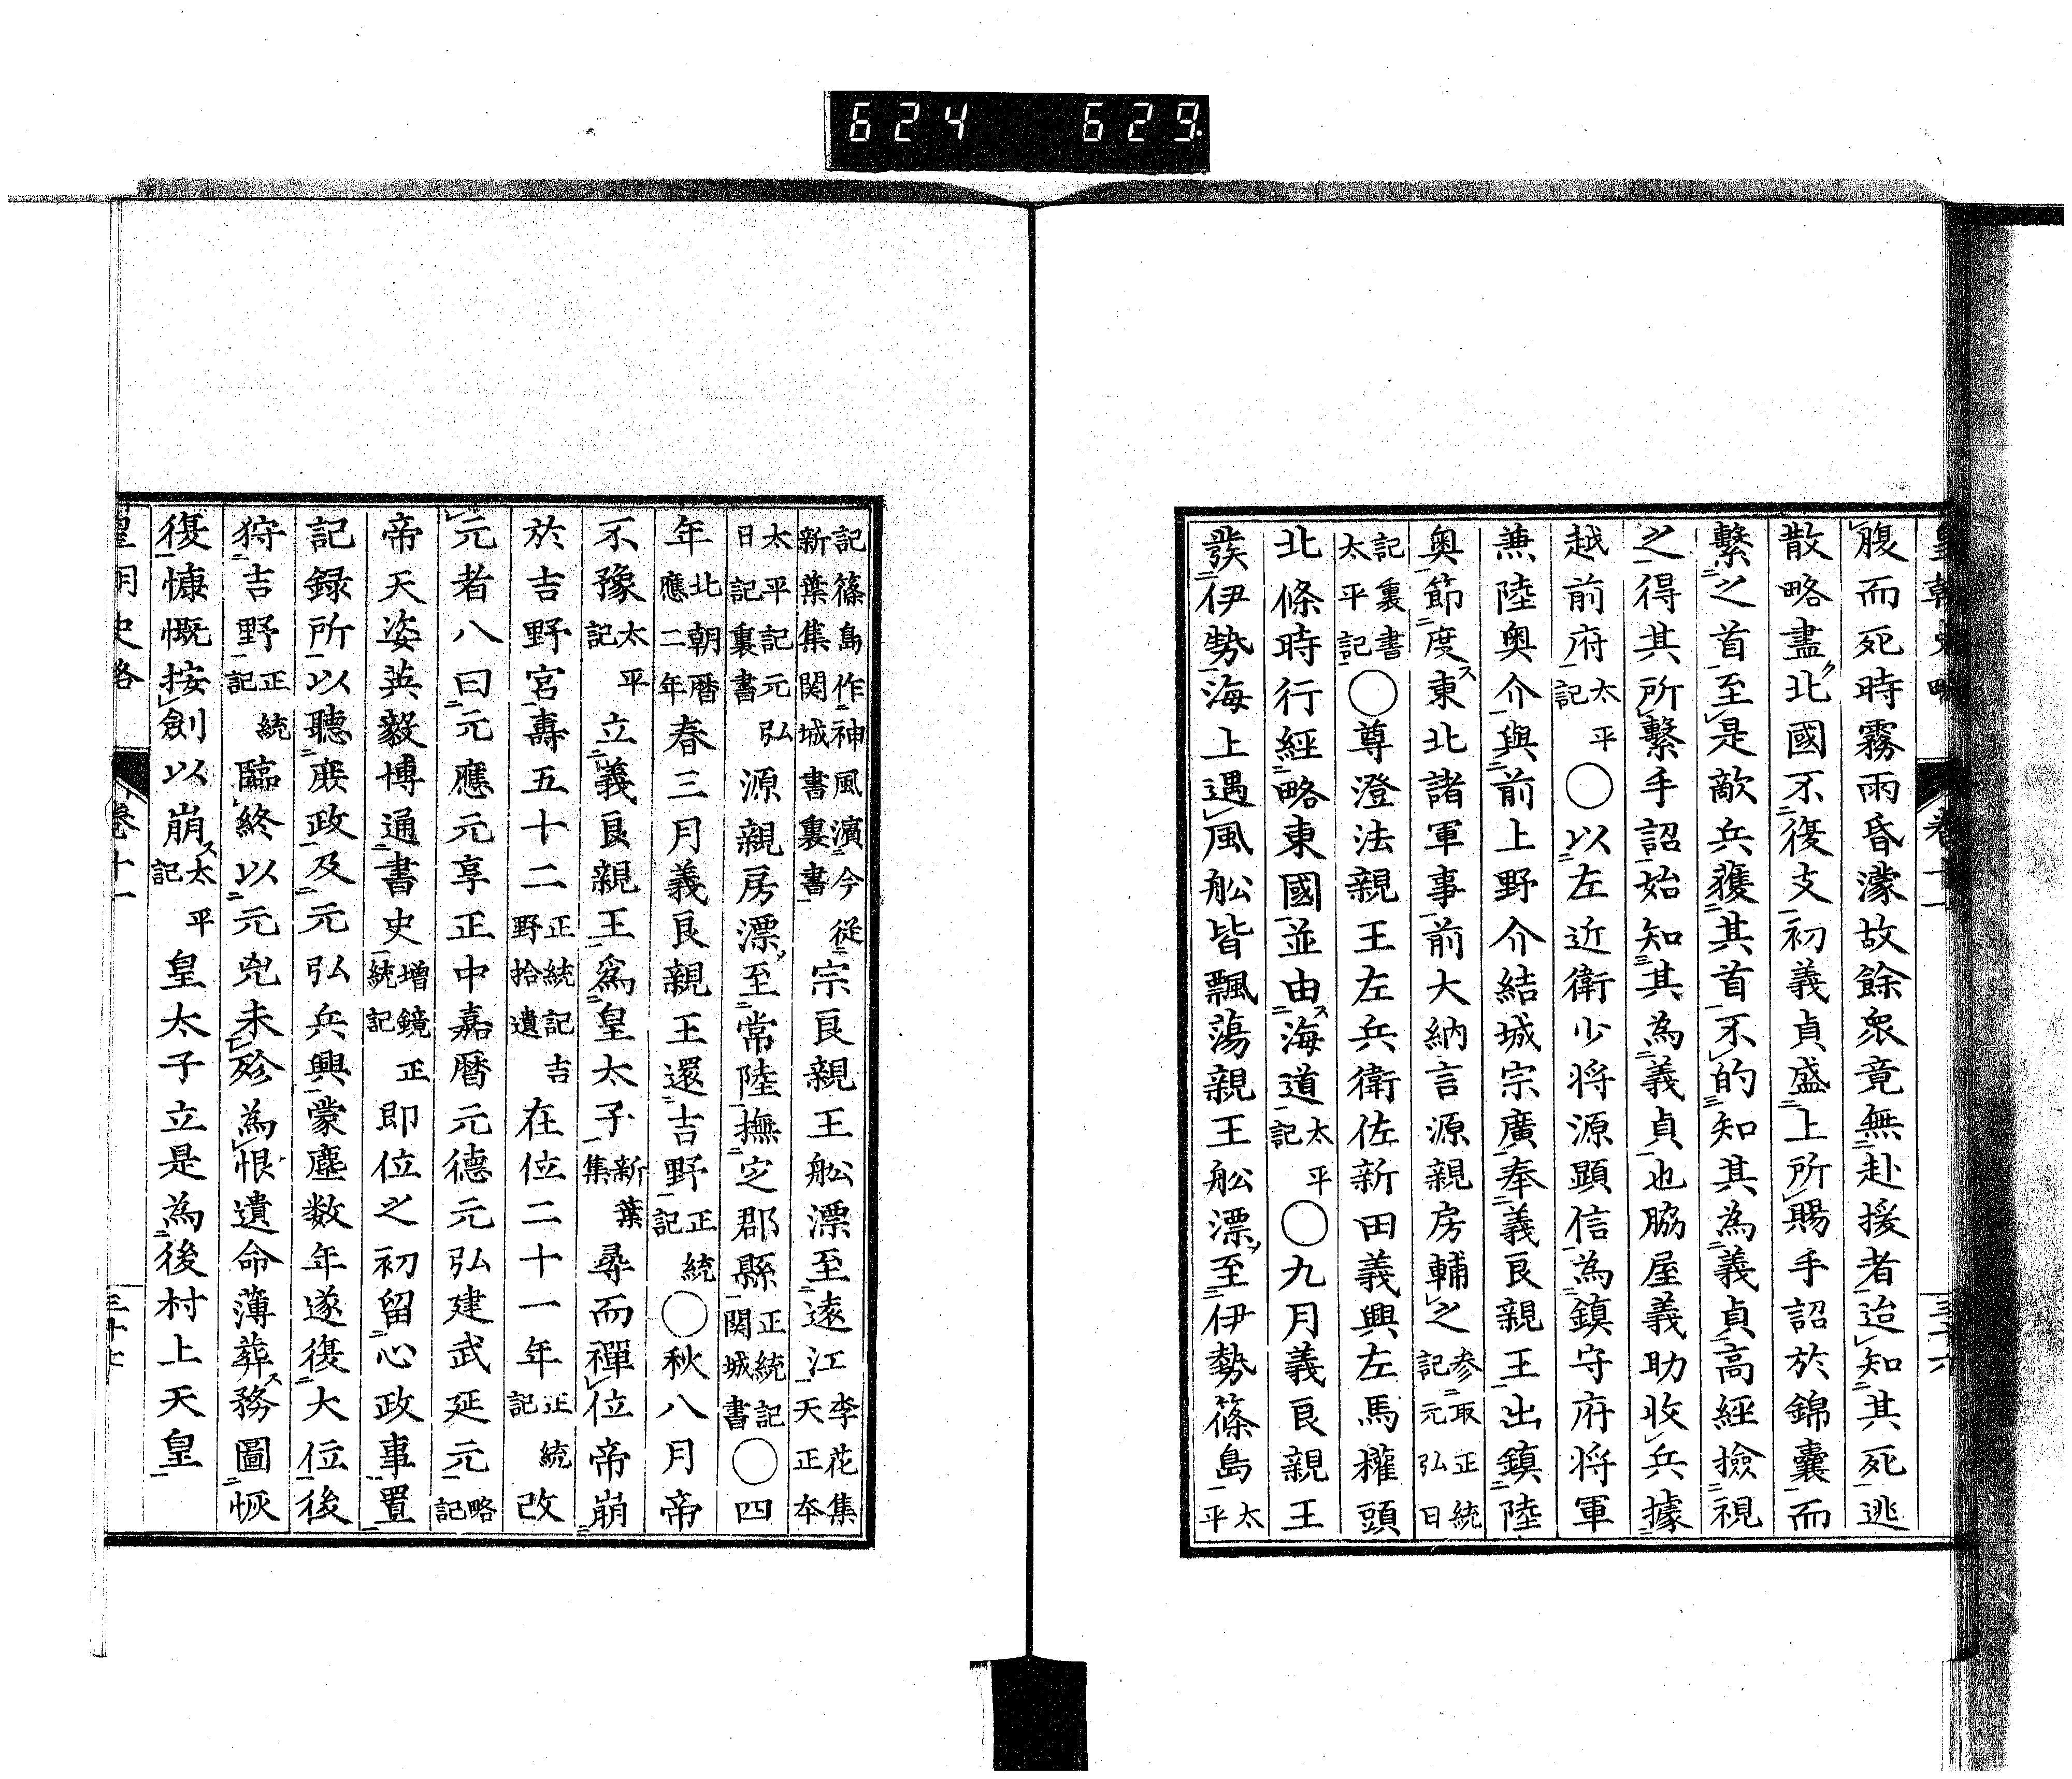 624 629
皇朝史略 卷十一 三十六
腹而死時霧雨昏濛故餘衆竟無赴援者迨知其死逃
散略盡北國不復支初義貞盛上所賜手詔於錦囊而
繫之首至是敵兵獲其首不的知其為義貞高經撿視
之得其所繫手詔始知其為義貞也脇屋義助收兵據
越前府太平記○以左近衛少将源顯信為鎮守府将軍
兼陸奥介與前上野介結城宗廣奉義良親王出鎮陸
奥節度東北諸軍事前大納言源親房輔之参取正統記元弘日
記裏書太平記○尊澄法親王左兵衛佐新田義興左馬權頭
北條時行經略東國並由海道太平記○九月義良親王
發伊勢海上遇風舩皆飄蕩親王舩漂至伊勢篠島太平
記篠島作神風濱今從新葉集関城書裏書宗良親王舩漂至遠江李花集天正本
太平記元弘日記裏書源親房漂至常陸撫定郡縣正統記関城書○四
年北朝暦應二年春三月義良親王還吉野正統記○秋八月帝
不豫太平記立義良親王為皇太子新葉集尋而禪位帝崩
於吉野宮壽五十二正統記吉野拾遺在位二十一年正統記改
元者八曰元應元享正中嘉暦元德元弘建武延元略記
帝天姿英毅博通書史增鏡正統記即位之初留心政事置
記録所以聽庶政及元弘兵興蒙塵数年遂復大位後
狩吉野正統記臨終以元兇未殄為恨遺命薄葬務圖恢
復慷慨按劍以崩太平記皇太子立是為後村上天皇
皇朝史略 卷十一 三十七